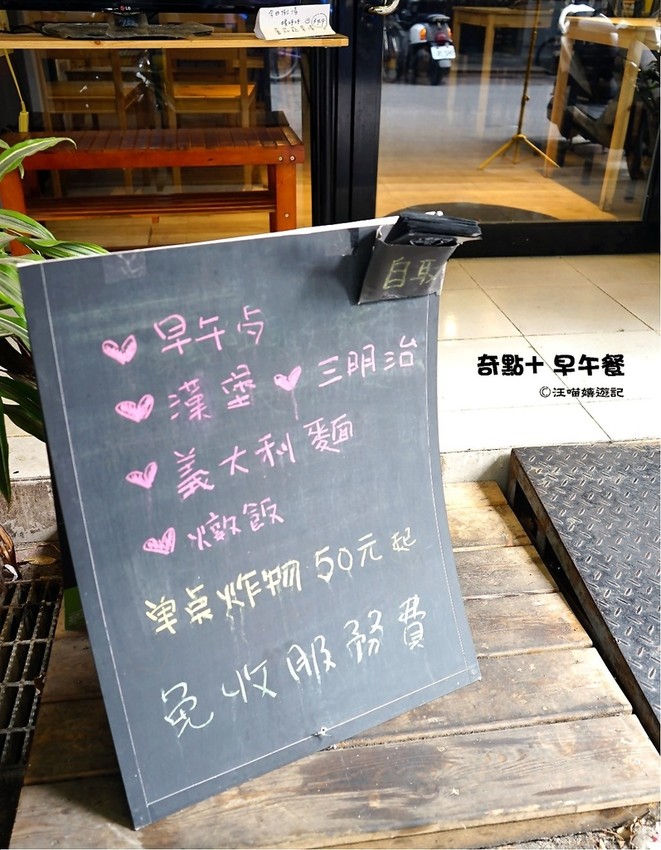 自取
♥ 早午点
♥ 漢堡 ♥ 三明治
♥ 義大利麵
♥ 燉飯
单点炸物 50元起
免收服務費
奇點十 早午餐
©汪喵嬉遊記
LG